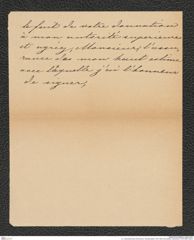 le fruit de votre donnation
à mon autorité supérieure
et agréez, Monsieur, l'assu-
rance de mon haut estime
avec laquelle j'ai l'honneur
de signer,